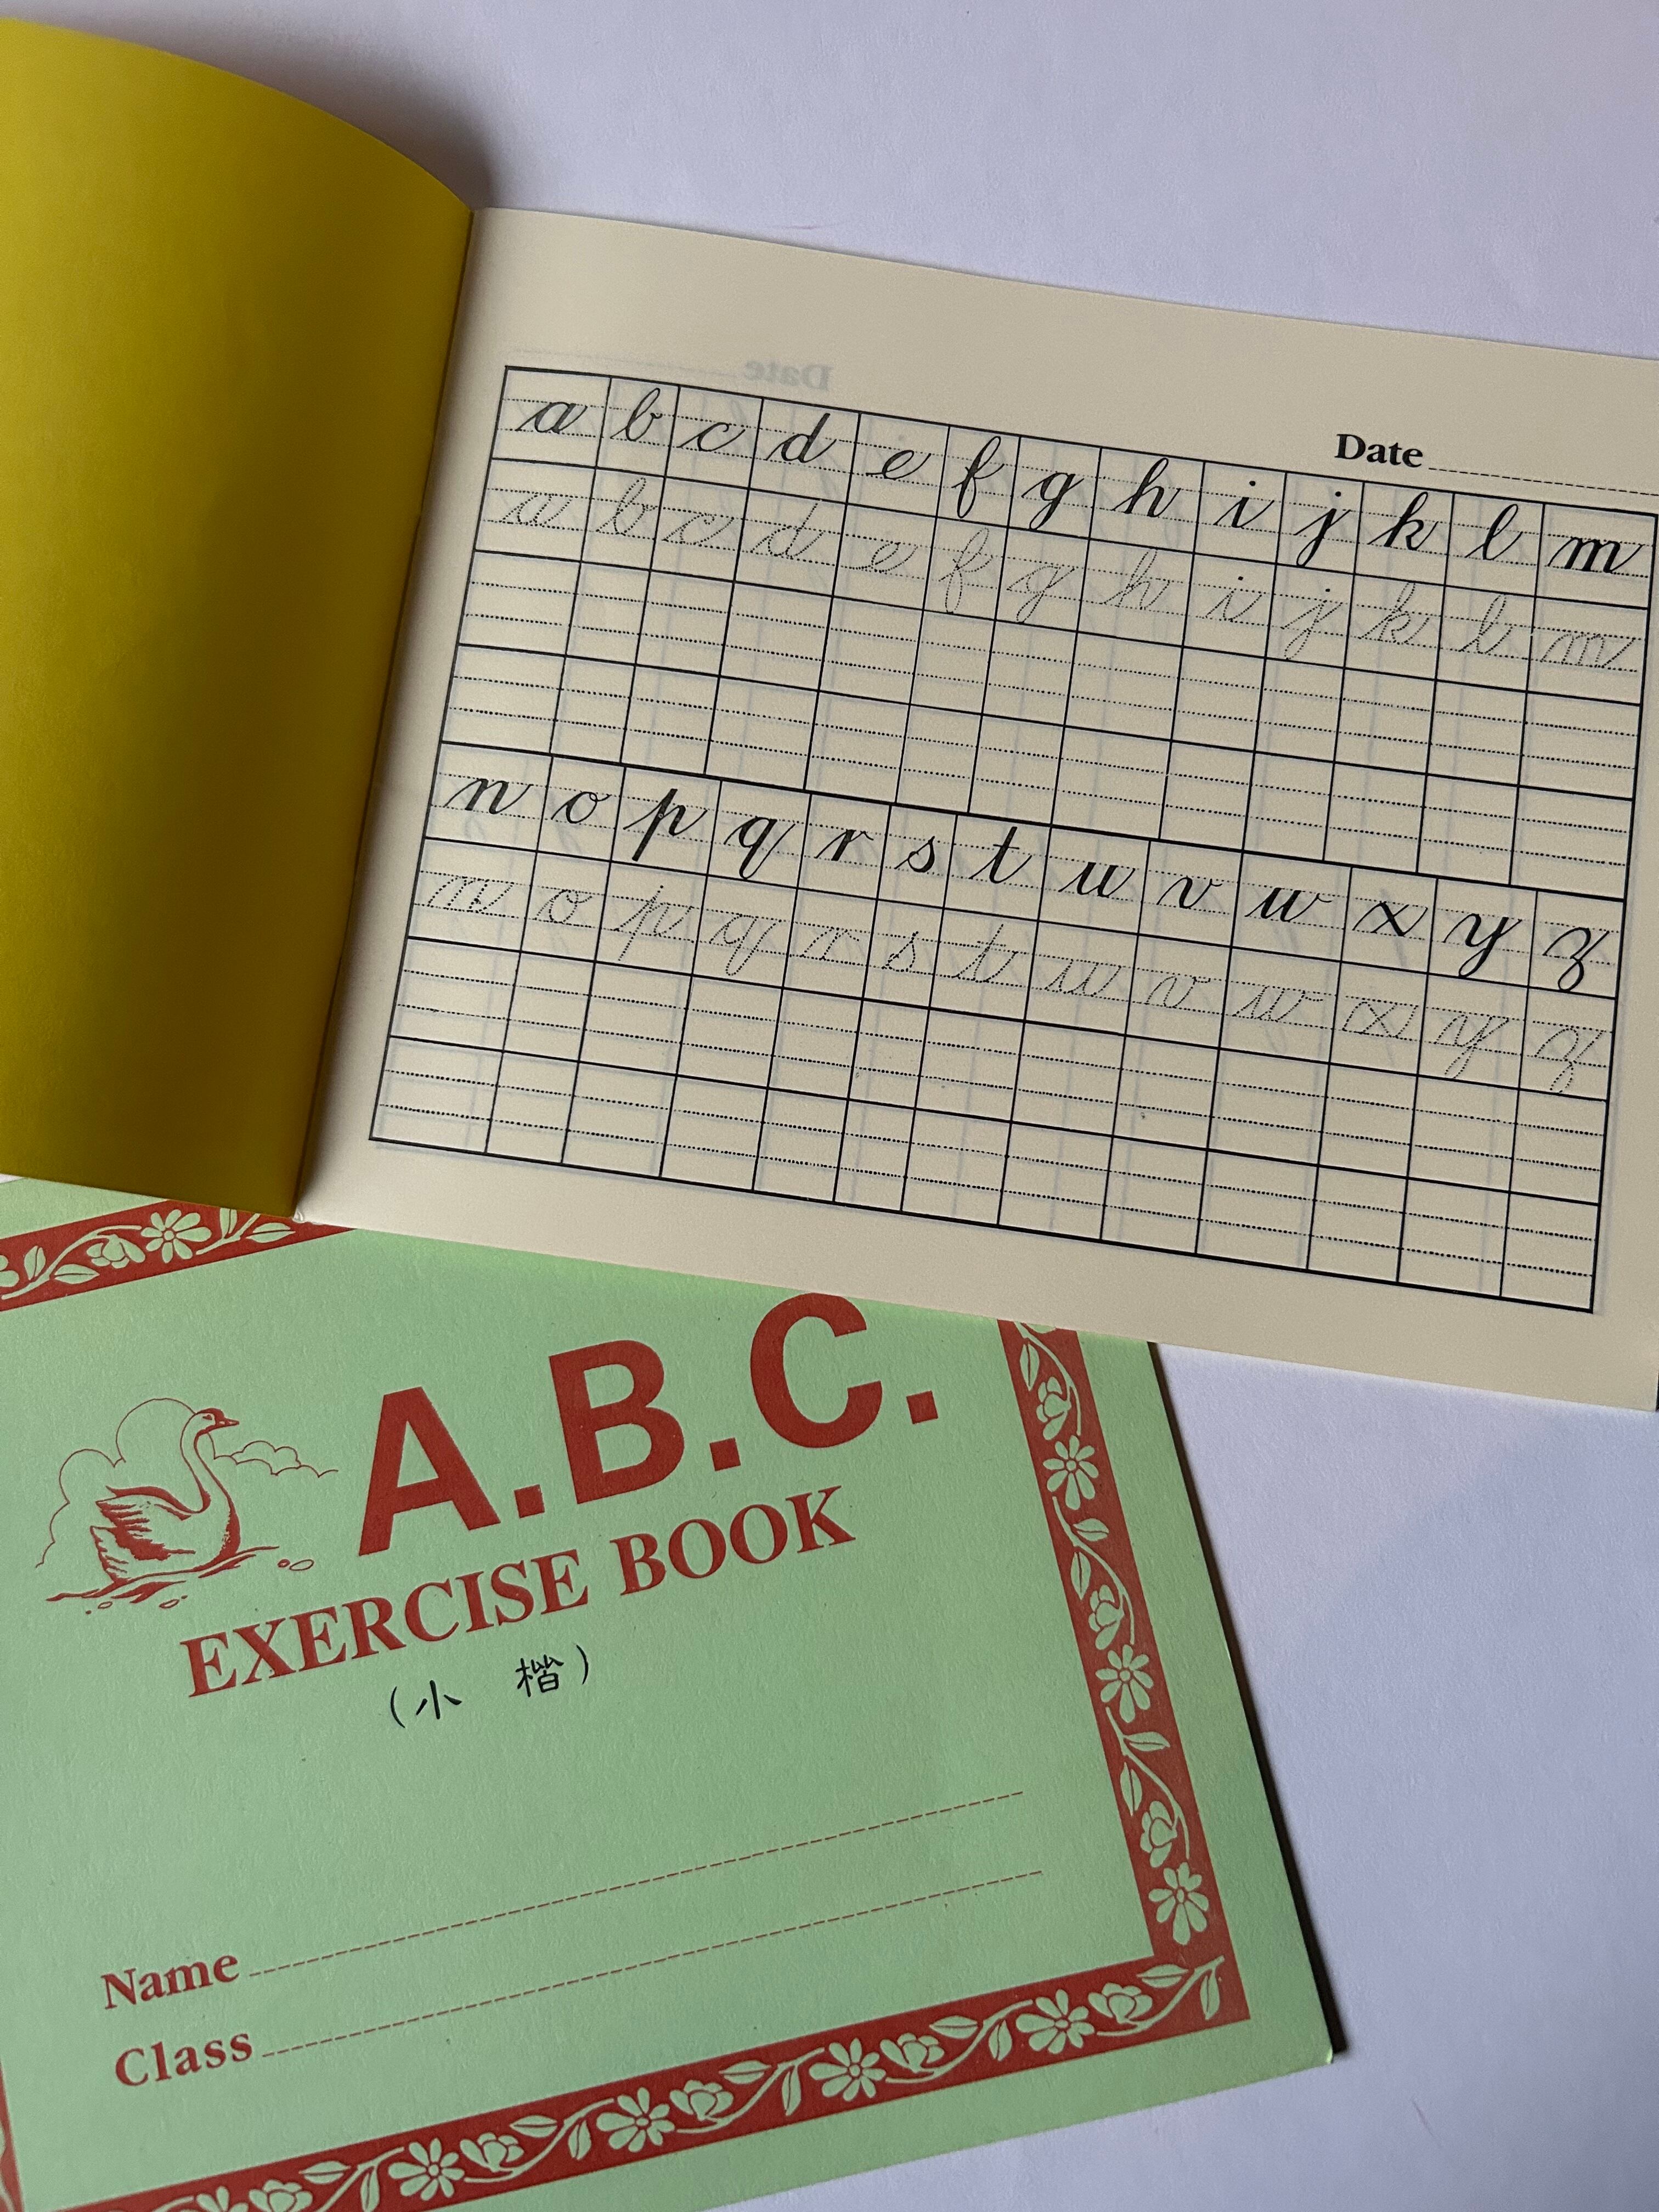 Date
a b c d e f g h i j k l m
a b c d e f g h i j k l m
n o p q r s t u v w x y z
n o p q r s t u v w x y z
A.B.C.
EXERCISE BOOK
(小 楷)
Name
Class